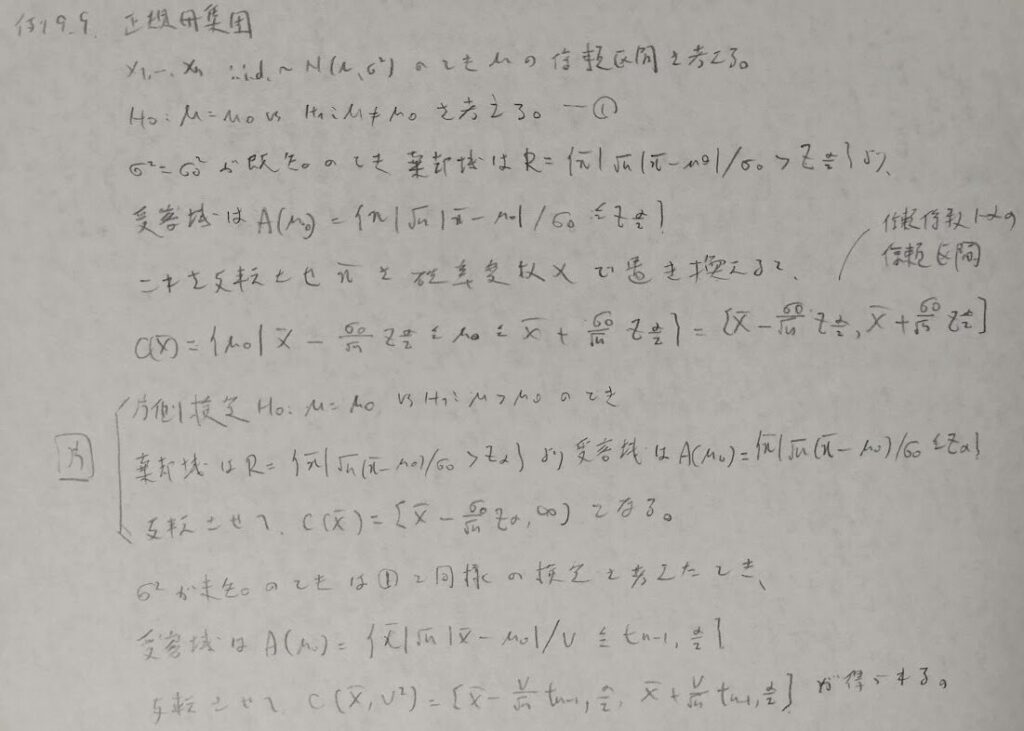 例9.9. 正規母集団
X₁,…, Xₙ i.i.d. ~ N(μ, σ²) のとき μ の信頼区間を考える。
H₀: μ = μ₀ vs H₁: μ ≠ μ₀ を考える。 ―①
σ² = σ₀² が既知。のとき 棄却域は R = {x̄ | √n |x̄ − μ₀| / σ₀ > Z_{α/2}} より、
受容域は A(μ₀) = {x̄ | √n |x̄ − μ₀| / σ₀ ≤ Z_{α/2}}
これを反転させ x̄ を確率変数 X で置き換えると、
信頼係数 1−α の
信頼区間
C(X̄) = {μ₀ | X̄ − σ₀/√n Z_{α/2} ≤ μ₀ ≤ X̄ + σ₀/√n Z_{α/2}} = [X̄ − σ₀/√n Z_{α/2}, X̄ + σ₀/√n Z_{α/2}]
片側検定 H₀: μ = μ₀ vs H₁: μ > μ₀ のとき
片
棄却域は R = {x̄ | √n (x̄ − μ₀)/σ₀ > Z_α} より 受容域は A(μ₀) = {x̄ | √n (x̄ − μ₀)/σ₀ ≤ Z_α}
反転させて、C(X̄) = [X̄ − σ₀/√n Z_α, ∞) となる。
σ² が未知。のときは ① と同様の検定を考えたとき、
受容域は A(μ₀) = {x̄ | √n |x̄ − μ₀| / V ≤ t_{n−1, α/2}}
反転させて、C(X̄, V²) = [X̄ − V/√n t_{n−1, α/2}, X̄ + V/√n t_{n−1, α/2}] が得られる。